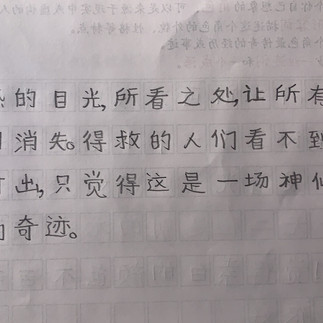 的目光,所看之处,让所有
消失。得救的人们看不到
出,只觉得这是一场神仙
的奇迹。